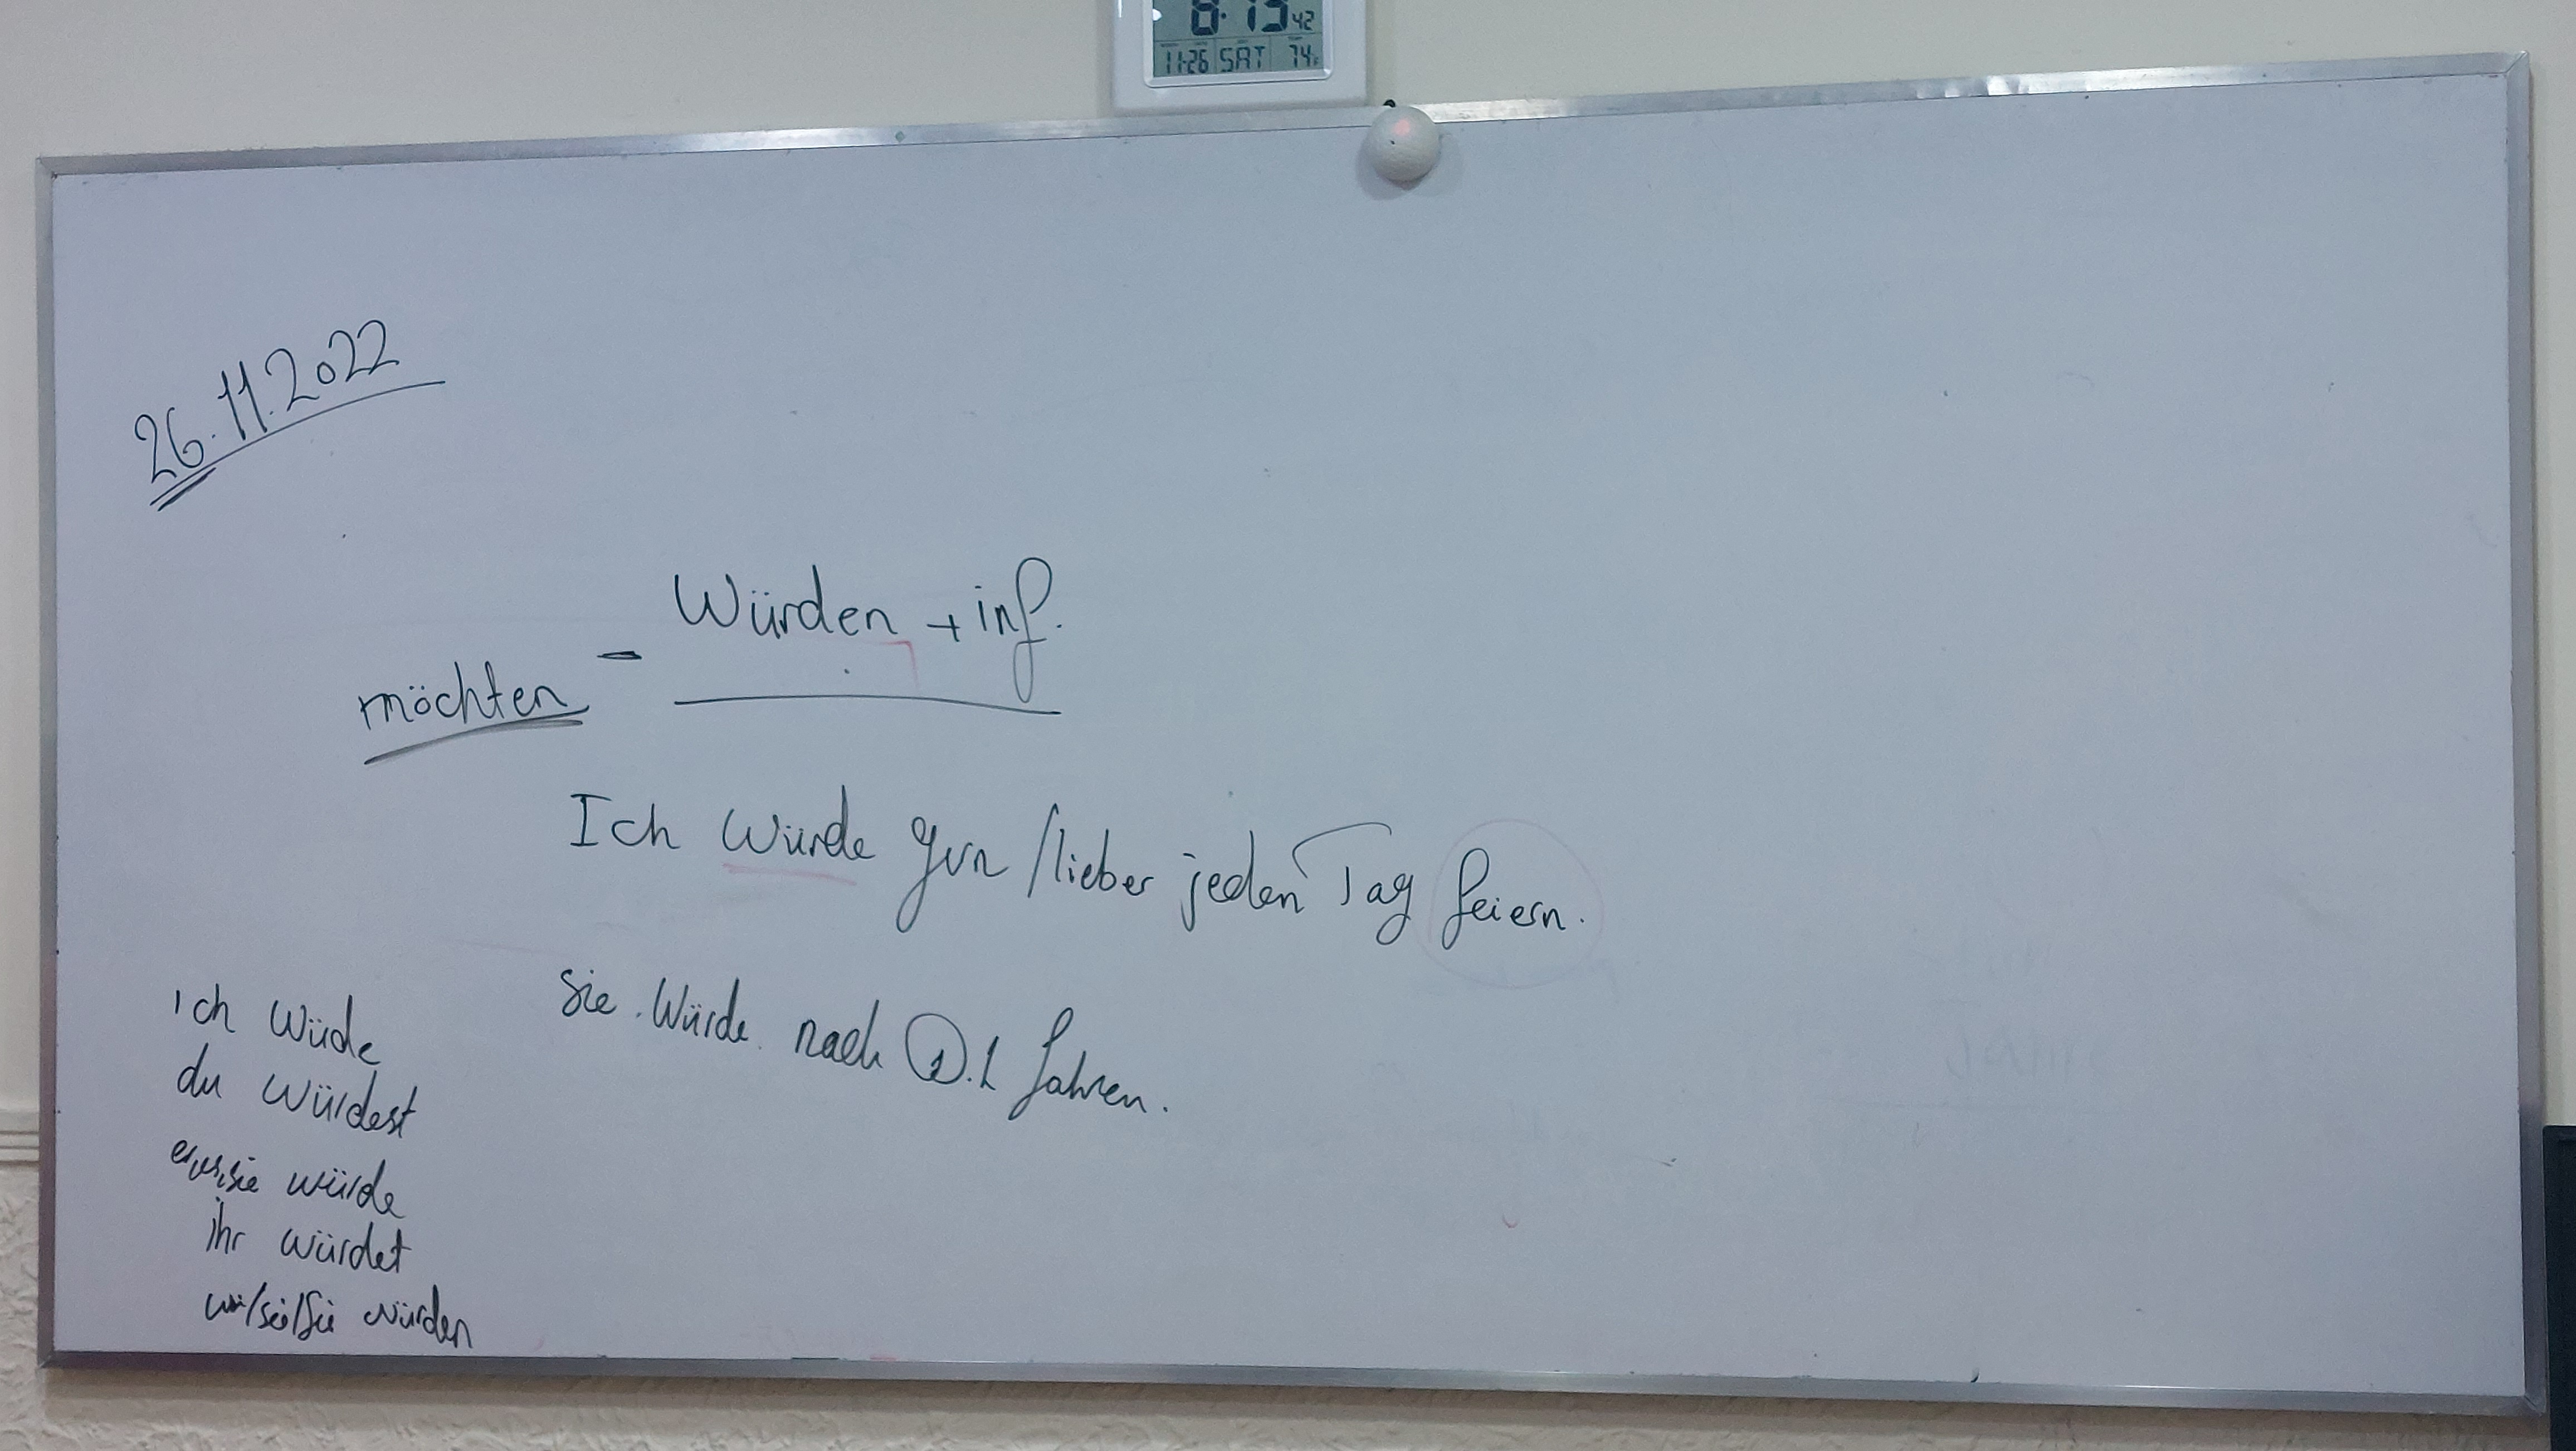 8:15 42
11-26 SAT 74F
26.11.2022
Würden + inf.
möchten -
Ich würde gern / lieber jeden Tag feiern.
Sie würde nach D.L fahren.
ich Wüde
du Würdest
er,es,sie würde
ihr würdet
wir/sie/Sie würden